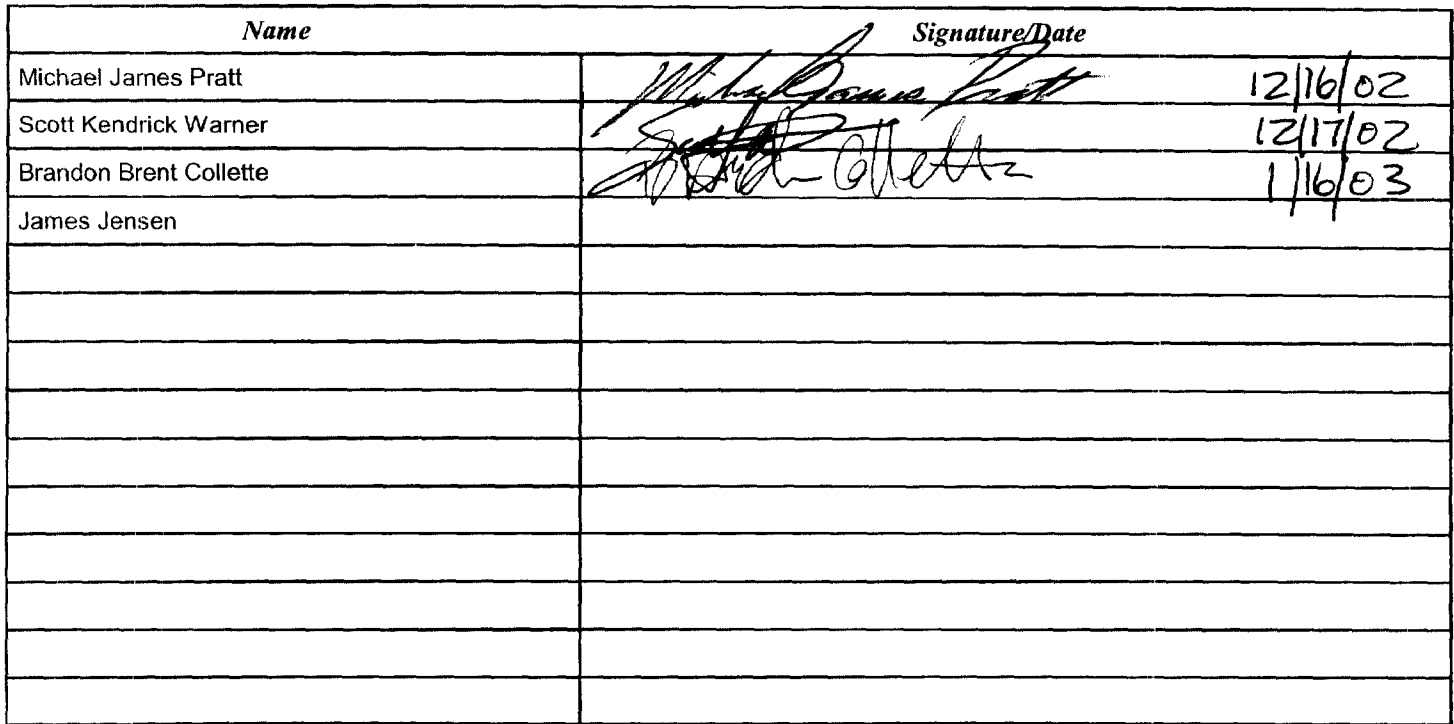 Name Signature/Date
Michael James Pratt Michael James Pratt 12/16/02
Scott Kendrick Warner 12/17/02
Brandon Brent Collette Collette 1/16/03
James Jensen